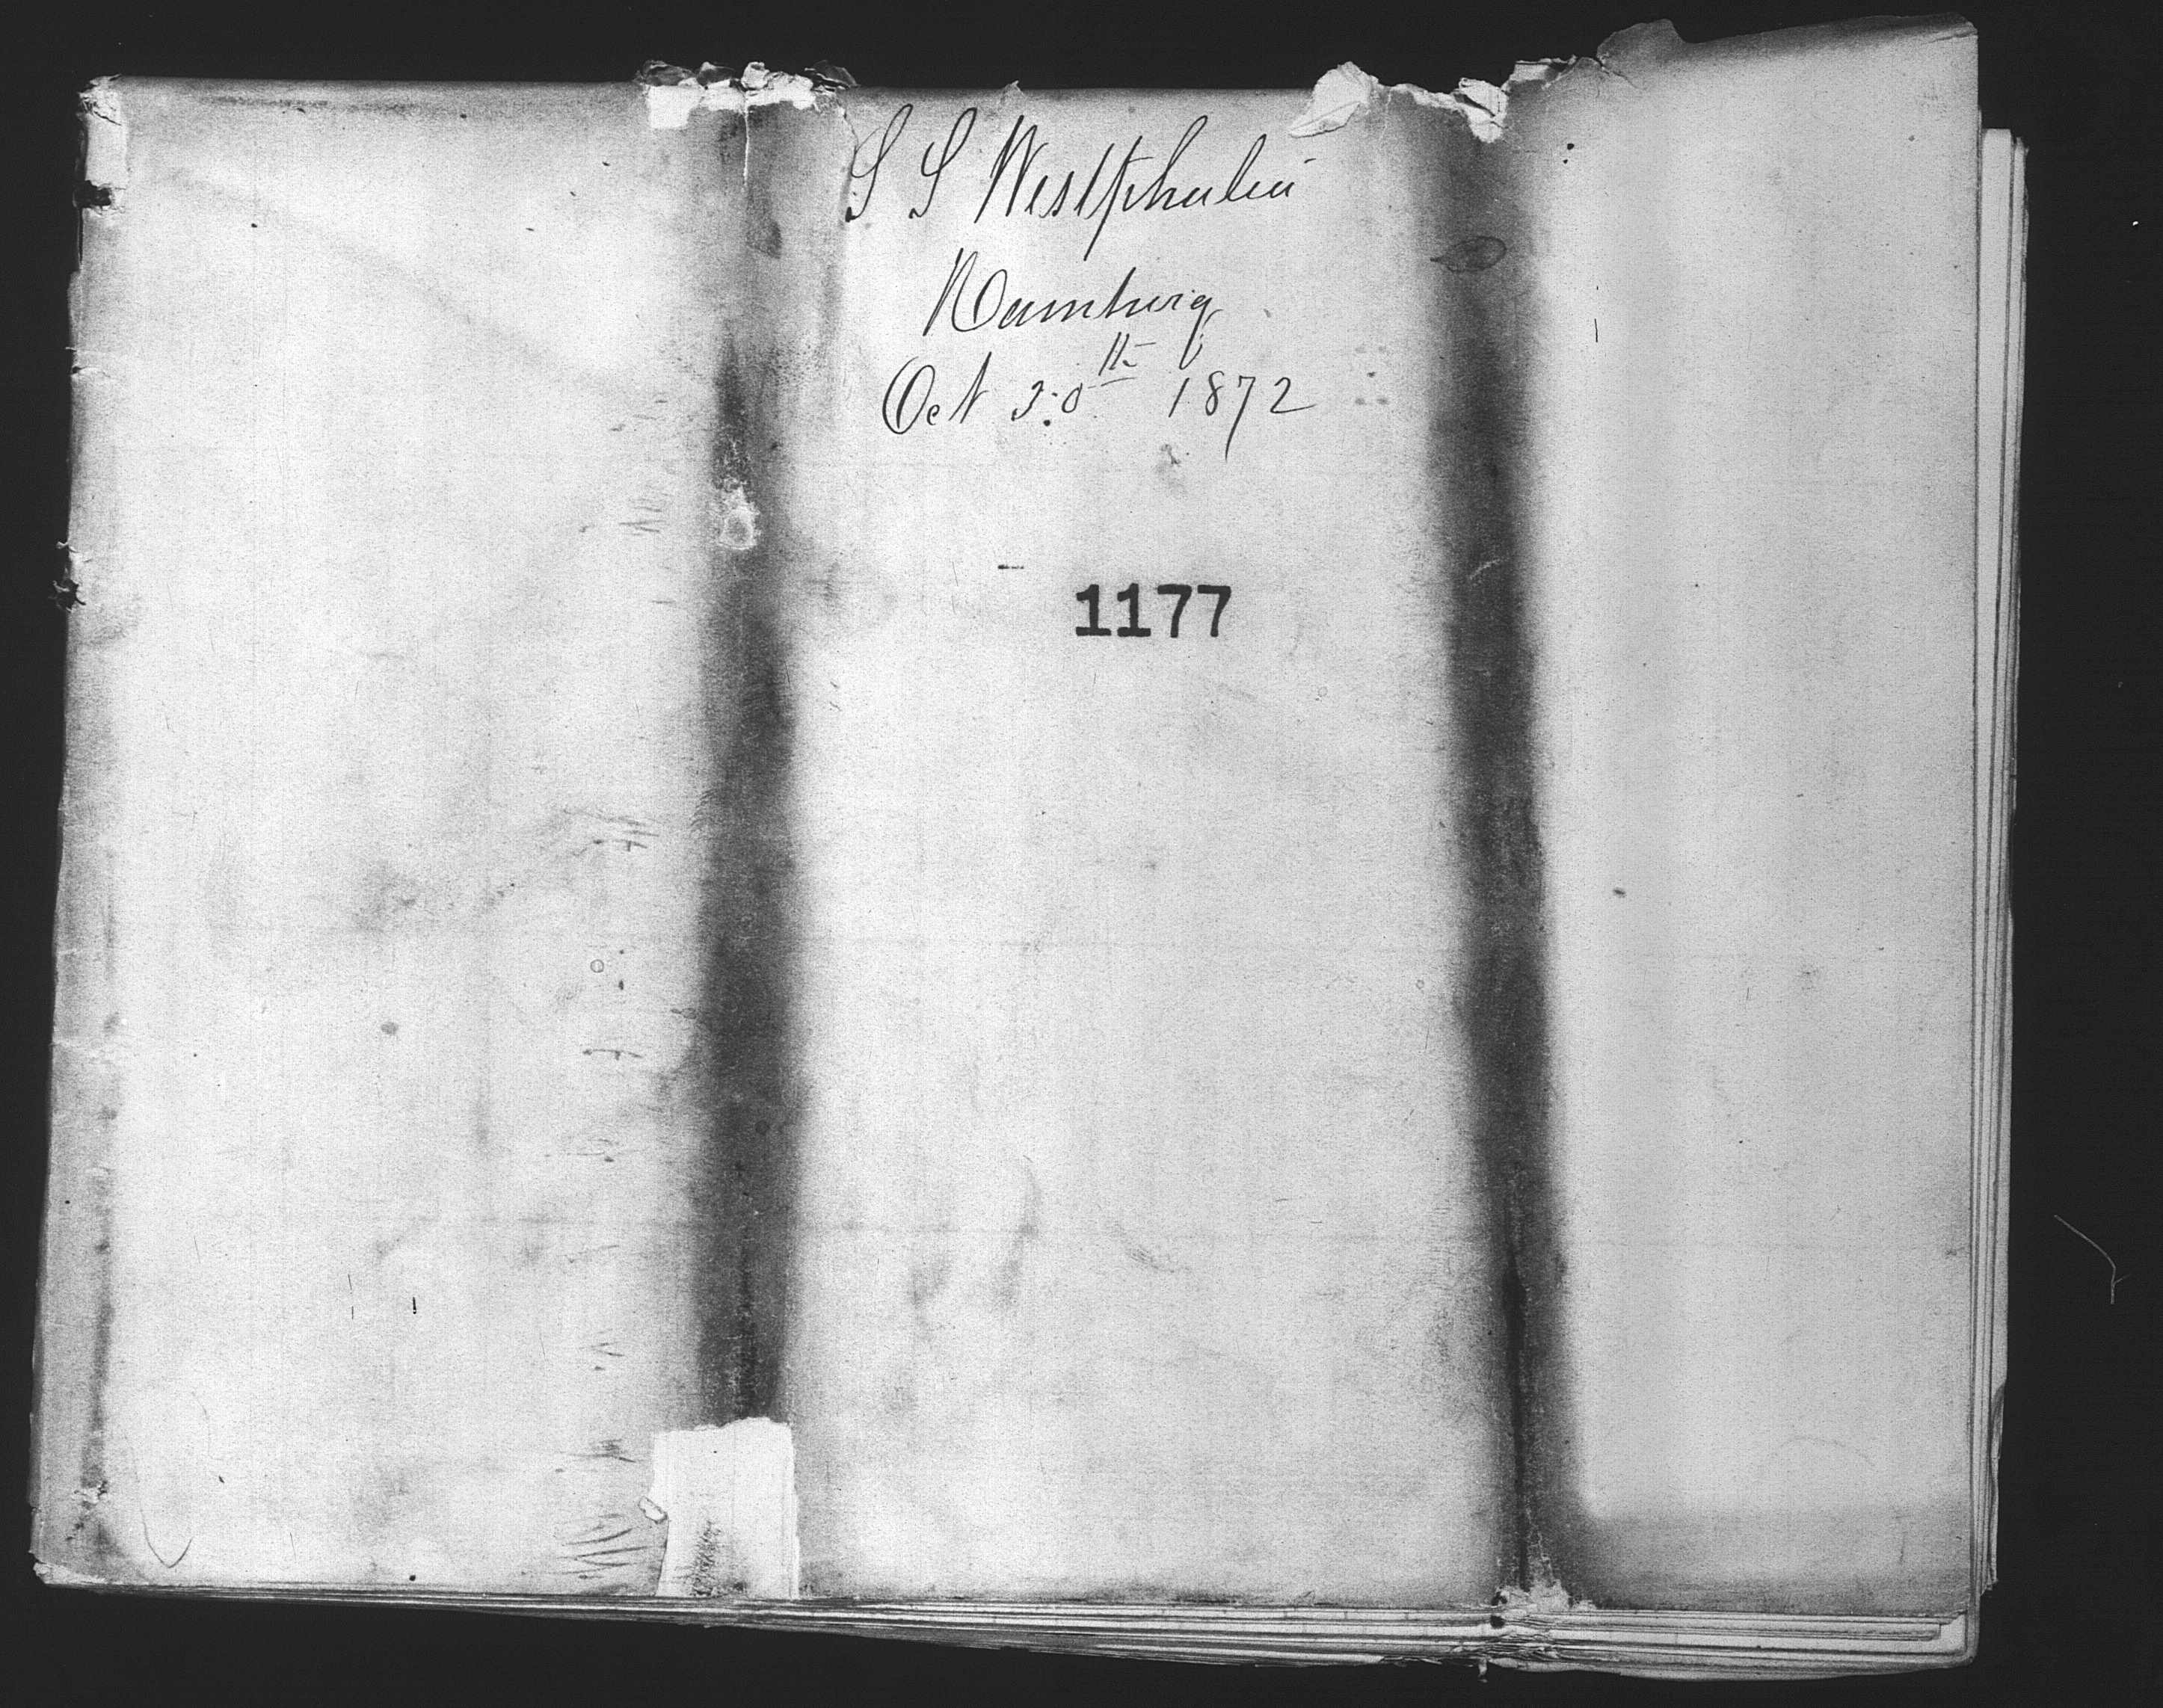 S S Westphalia
Hamburg
Oct 30th 1872
1177